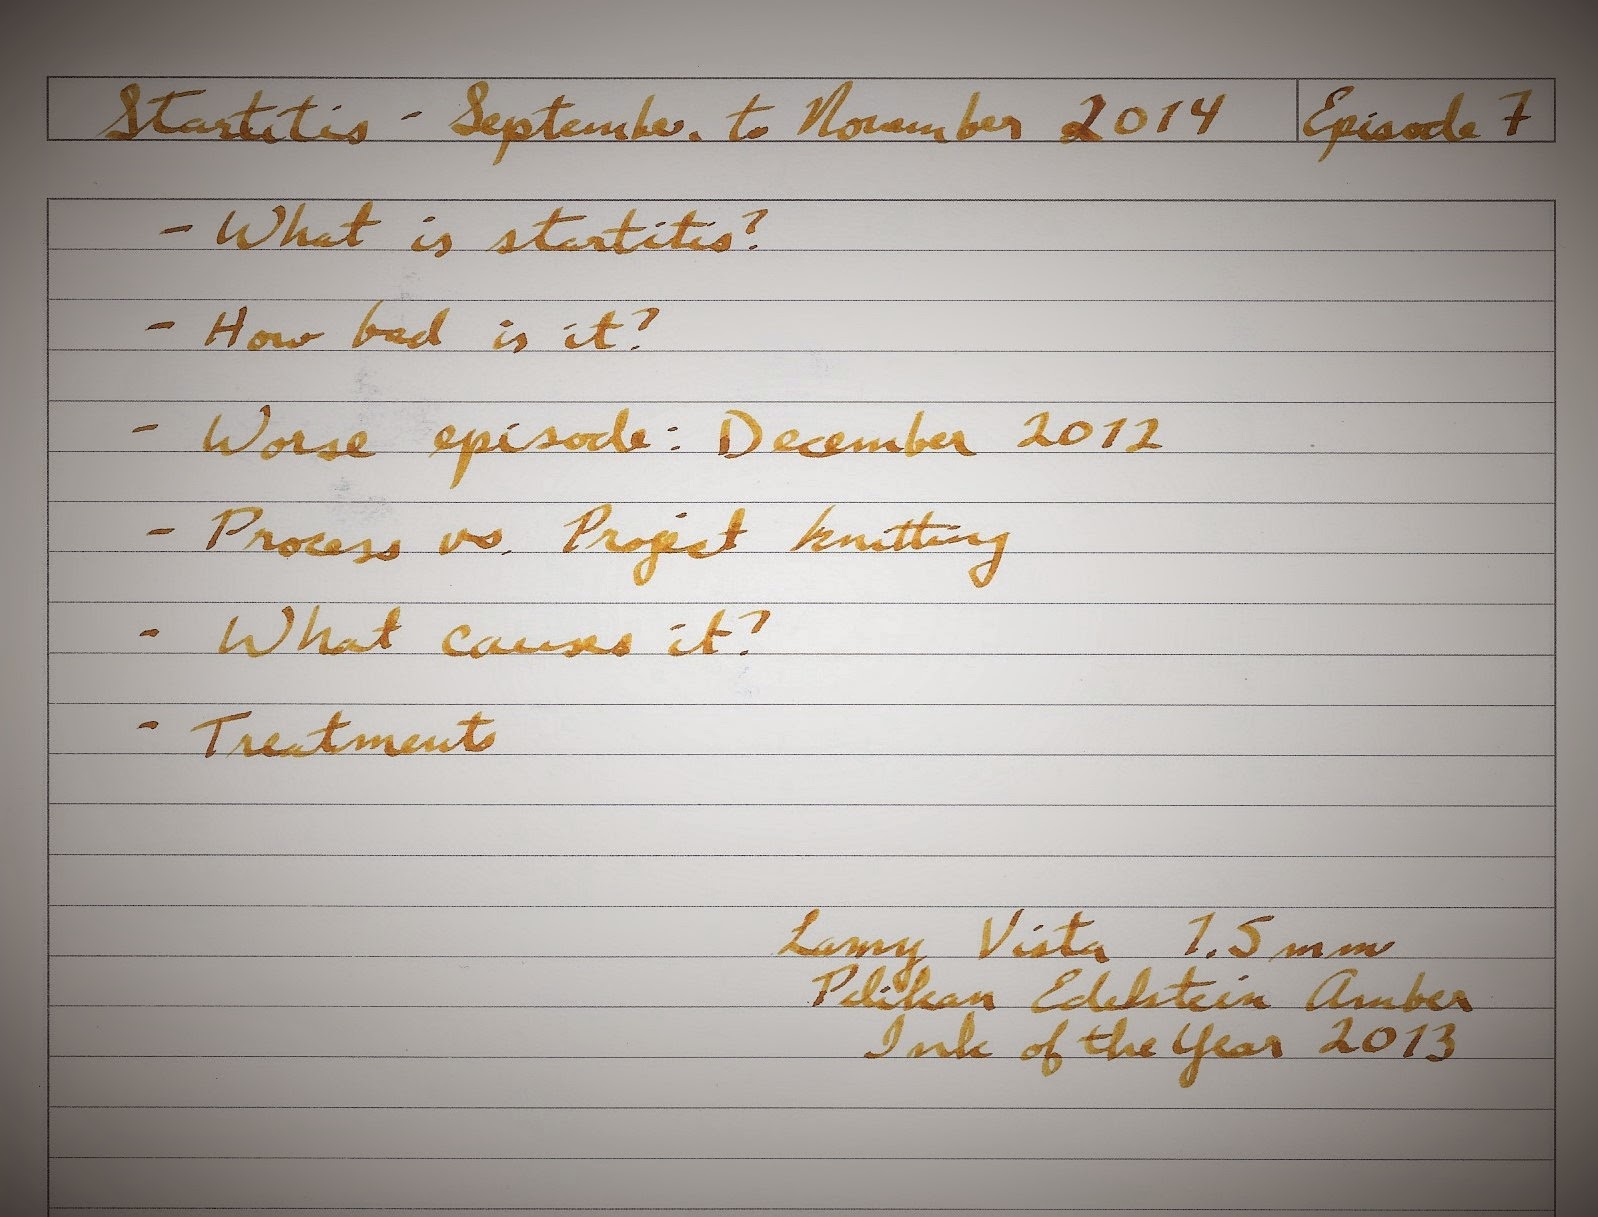 Startitis - September to November 2014 Episode 7
- What is startitis?
- How bad is it?
- Worse episode: December 2012
- Process vs. Project knitting
- What causes it?
- Treatments
Lamy Vista 1.5mm
Pelikan Edelstein Amber
Ink of the Year 2013